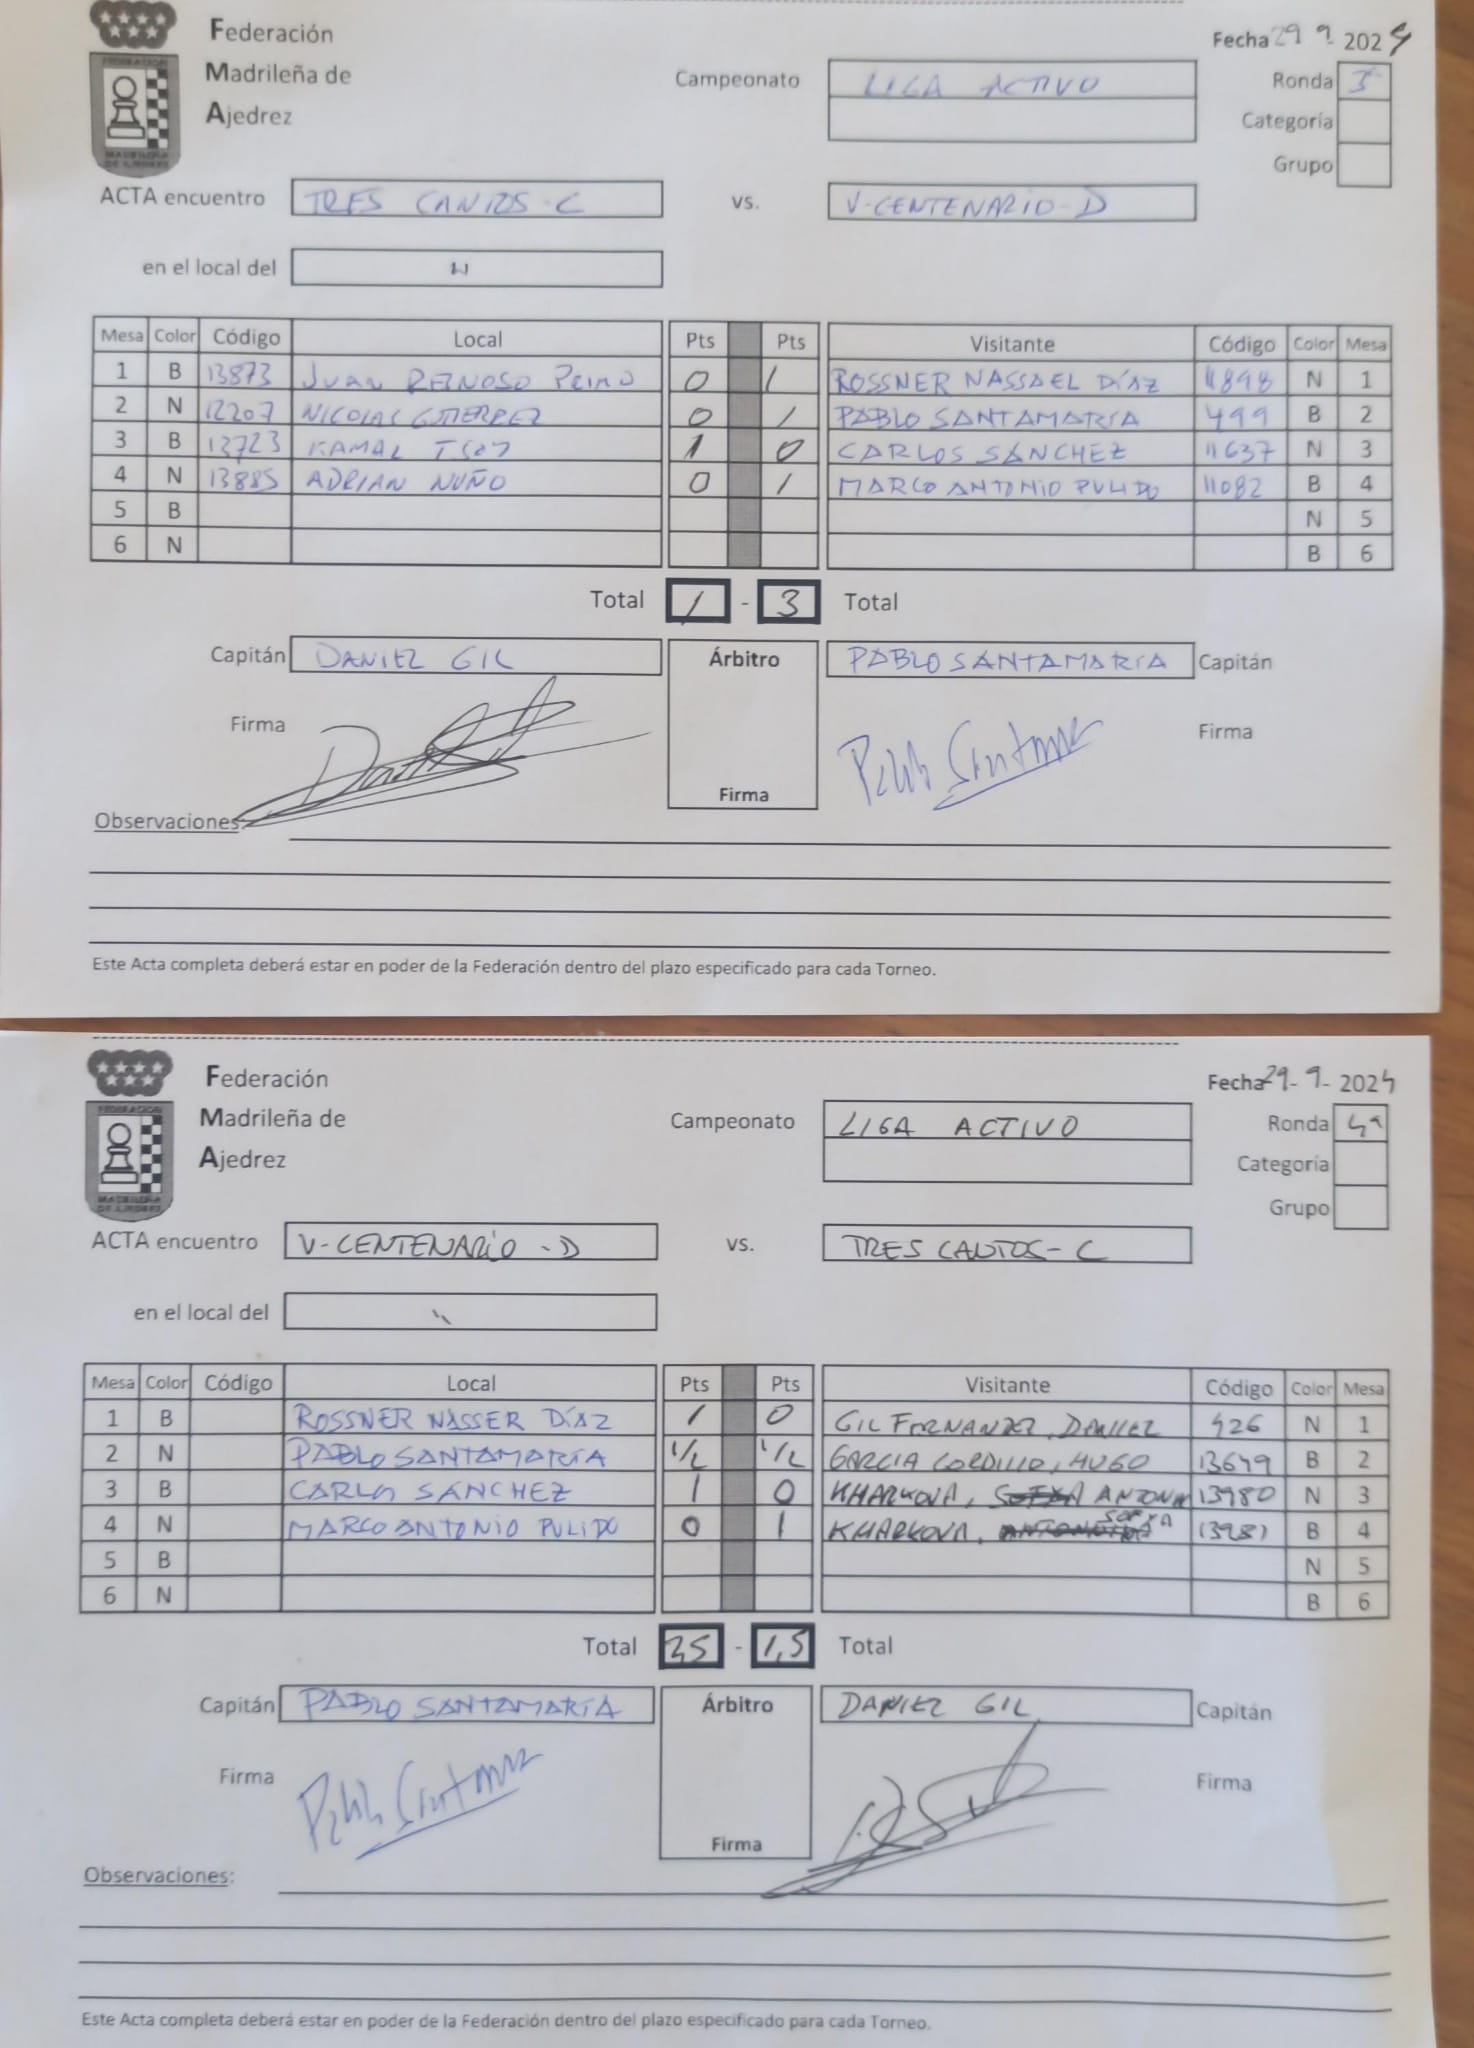 Federación
Madrileña de
Ajedrez
Fecha 29 9 2024
Campeonato LIGA ACTIVO
Ronda 3ª
Categoría
Grupo
ACTA encuentro TRES CANTOS - C vs. V-CENTENARIO-D
en el local del "
Mesa Color Código Local Pts Pts Visitante Código Color Mesa
1 B 13873 Juan REINOSO Primo 0 1 ROSSNER NASSAEL DÍAZ 11898 N 1
2 N 12207 NICOLAS GUTIERREZ 0 1 PABLO SANTAMARÍA 499 B 2
3 B 13723 KAMAL TSOY 1 0 CARLOS SÁNCHEZ 11637 N 3
4 N 13885 ADRIAN NUÑO 0 1 MARCO ANTONIO PULIDO 11082 B 4
5 B N 5
6 N B 6
Total 1 - 3 Total
Capitán DANIEL GIL Árbitro PABLO SANTAMARÍA Capitán
Firma Pablo Santamar Firma
Firma
Observaciones:
Este Acta completa deberá estar en poder de la Federación dentro del plazo especificado para cada Torneo.
Federación
Madrileña de
Ajedrez
FEDERACION
MADRILEÑA
DE AJEDREZ
Fecha 29-9-2024
Campeonato LIGA ACTIVO
Ronda 4ª
Categoría
Grupo
ACTA encuentro V-CENTENARIO - D vs. TRES CANTOS - C
en el local del "
Mesa Color Código Local Pts Pts Visitante Código Color Mesa
1 B ROSSNER NASSER DÍAZ 1 0 GIL FERNANDEZ, DANIEL 426 N 1
2 N PABLO SANTAMARÍA 1/2 1/2 GARCIA GORDILLO, HUGO 13649 B 2
3 B CARLOS SÁNCHEZ 1 0 KHARKOVA, ANTONIN 13980 N 3
4 N MARCO ANTONIO PULIDO 0 1 KHARKOVA, SOFYA 13981 B 4
5 B N 5
6 N B 6
Total 2,5 - 1,5 Total
Capitán PABLO SANTAMARÍA Árbitro DANIEL GIL Capitán
Firma Pablo Santamar Firma
Firma
Observaciones:
Este Acta completa deberá estar en poder de la Federación dentro del plazo especificado para cada Torneo.